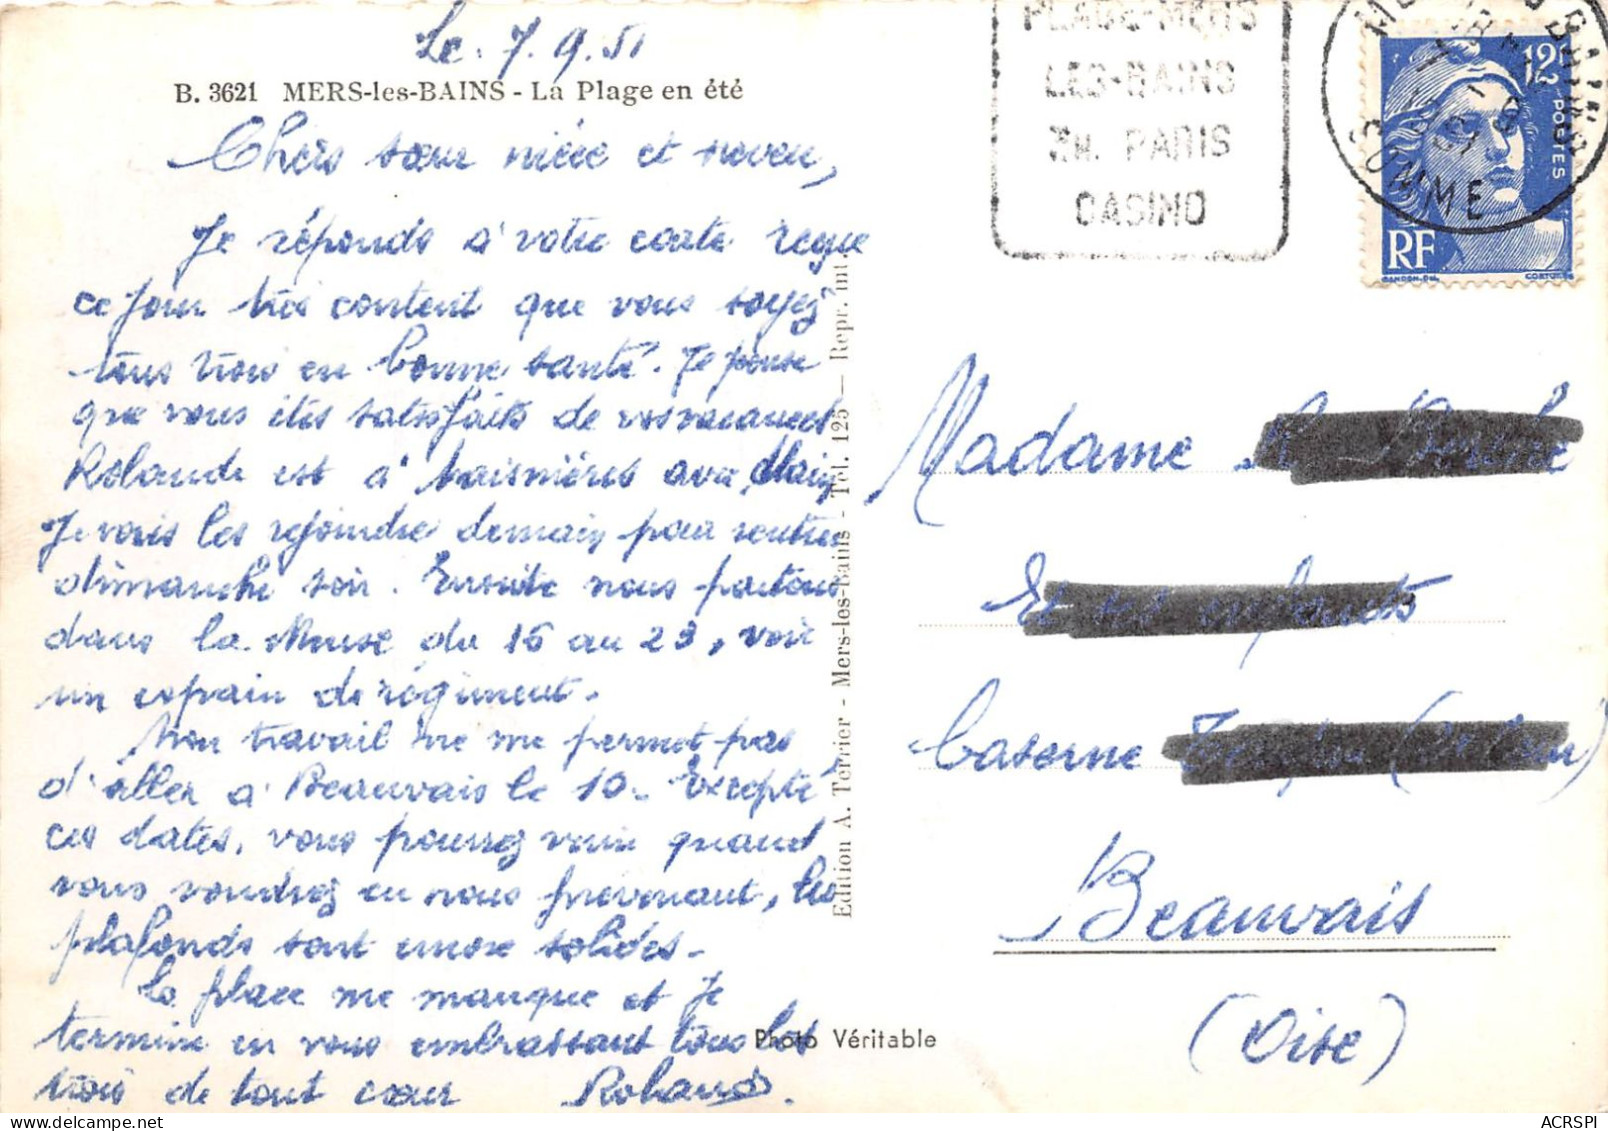 Le 7.9.51
B. 3621 MERS-les-BAINS - La Plage en été
Chers sœur nièce et neveu,
Je réponds à votre carte reçue
ce jour très content que vous soyez
tous trois en bonne santé. Je pense
que vous êtes satisfaits de vos vacances
Rolande est à avec Alain
Je vais les rejoindre demain pour rentrer
dimanche soir. Ensuite nous partons
dans la Meuse du 16 au 23, voir
un copain de régiment.
Mon travail ne me permet pas
d'aller à Beauvais le 10. Excepté
ces dates, vous pourrez venir quand
vous voudrez en nous prévenant, les
plafonds sont encore solides.
La place me manque et je
termine en vous embrassant tous les
trois de tout cœur Roland.
Edition A. Terrier - Mers-les-Bains - Tél. 125 — Repr. int.
Photo Véritable
PLAGE-MERS
LES-BAINS
PARIS
CASINO
SOMME
12F
POSTES
RF
GANDON.DEL
Madame
Caserne
Beauvais
(Oise)
ACRSPI